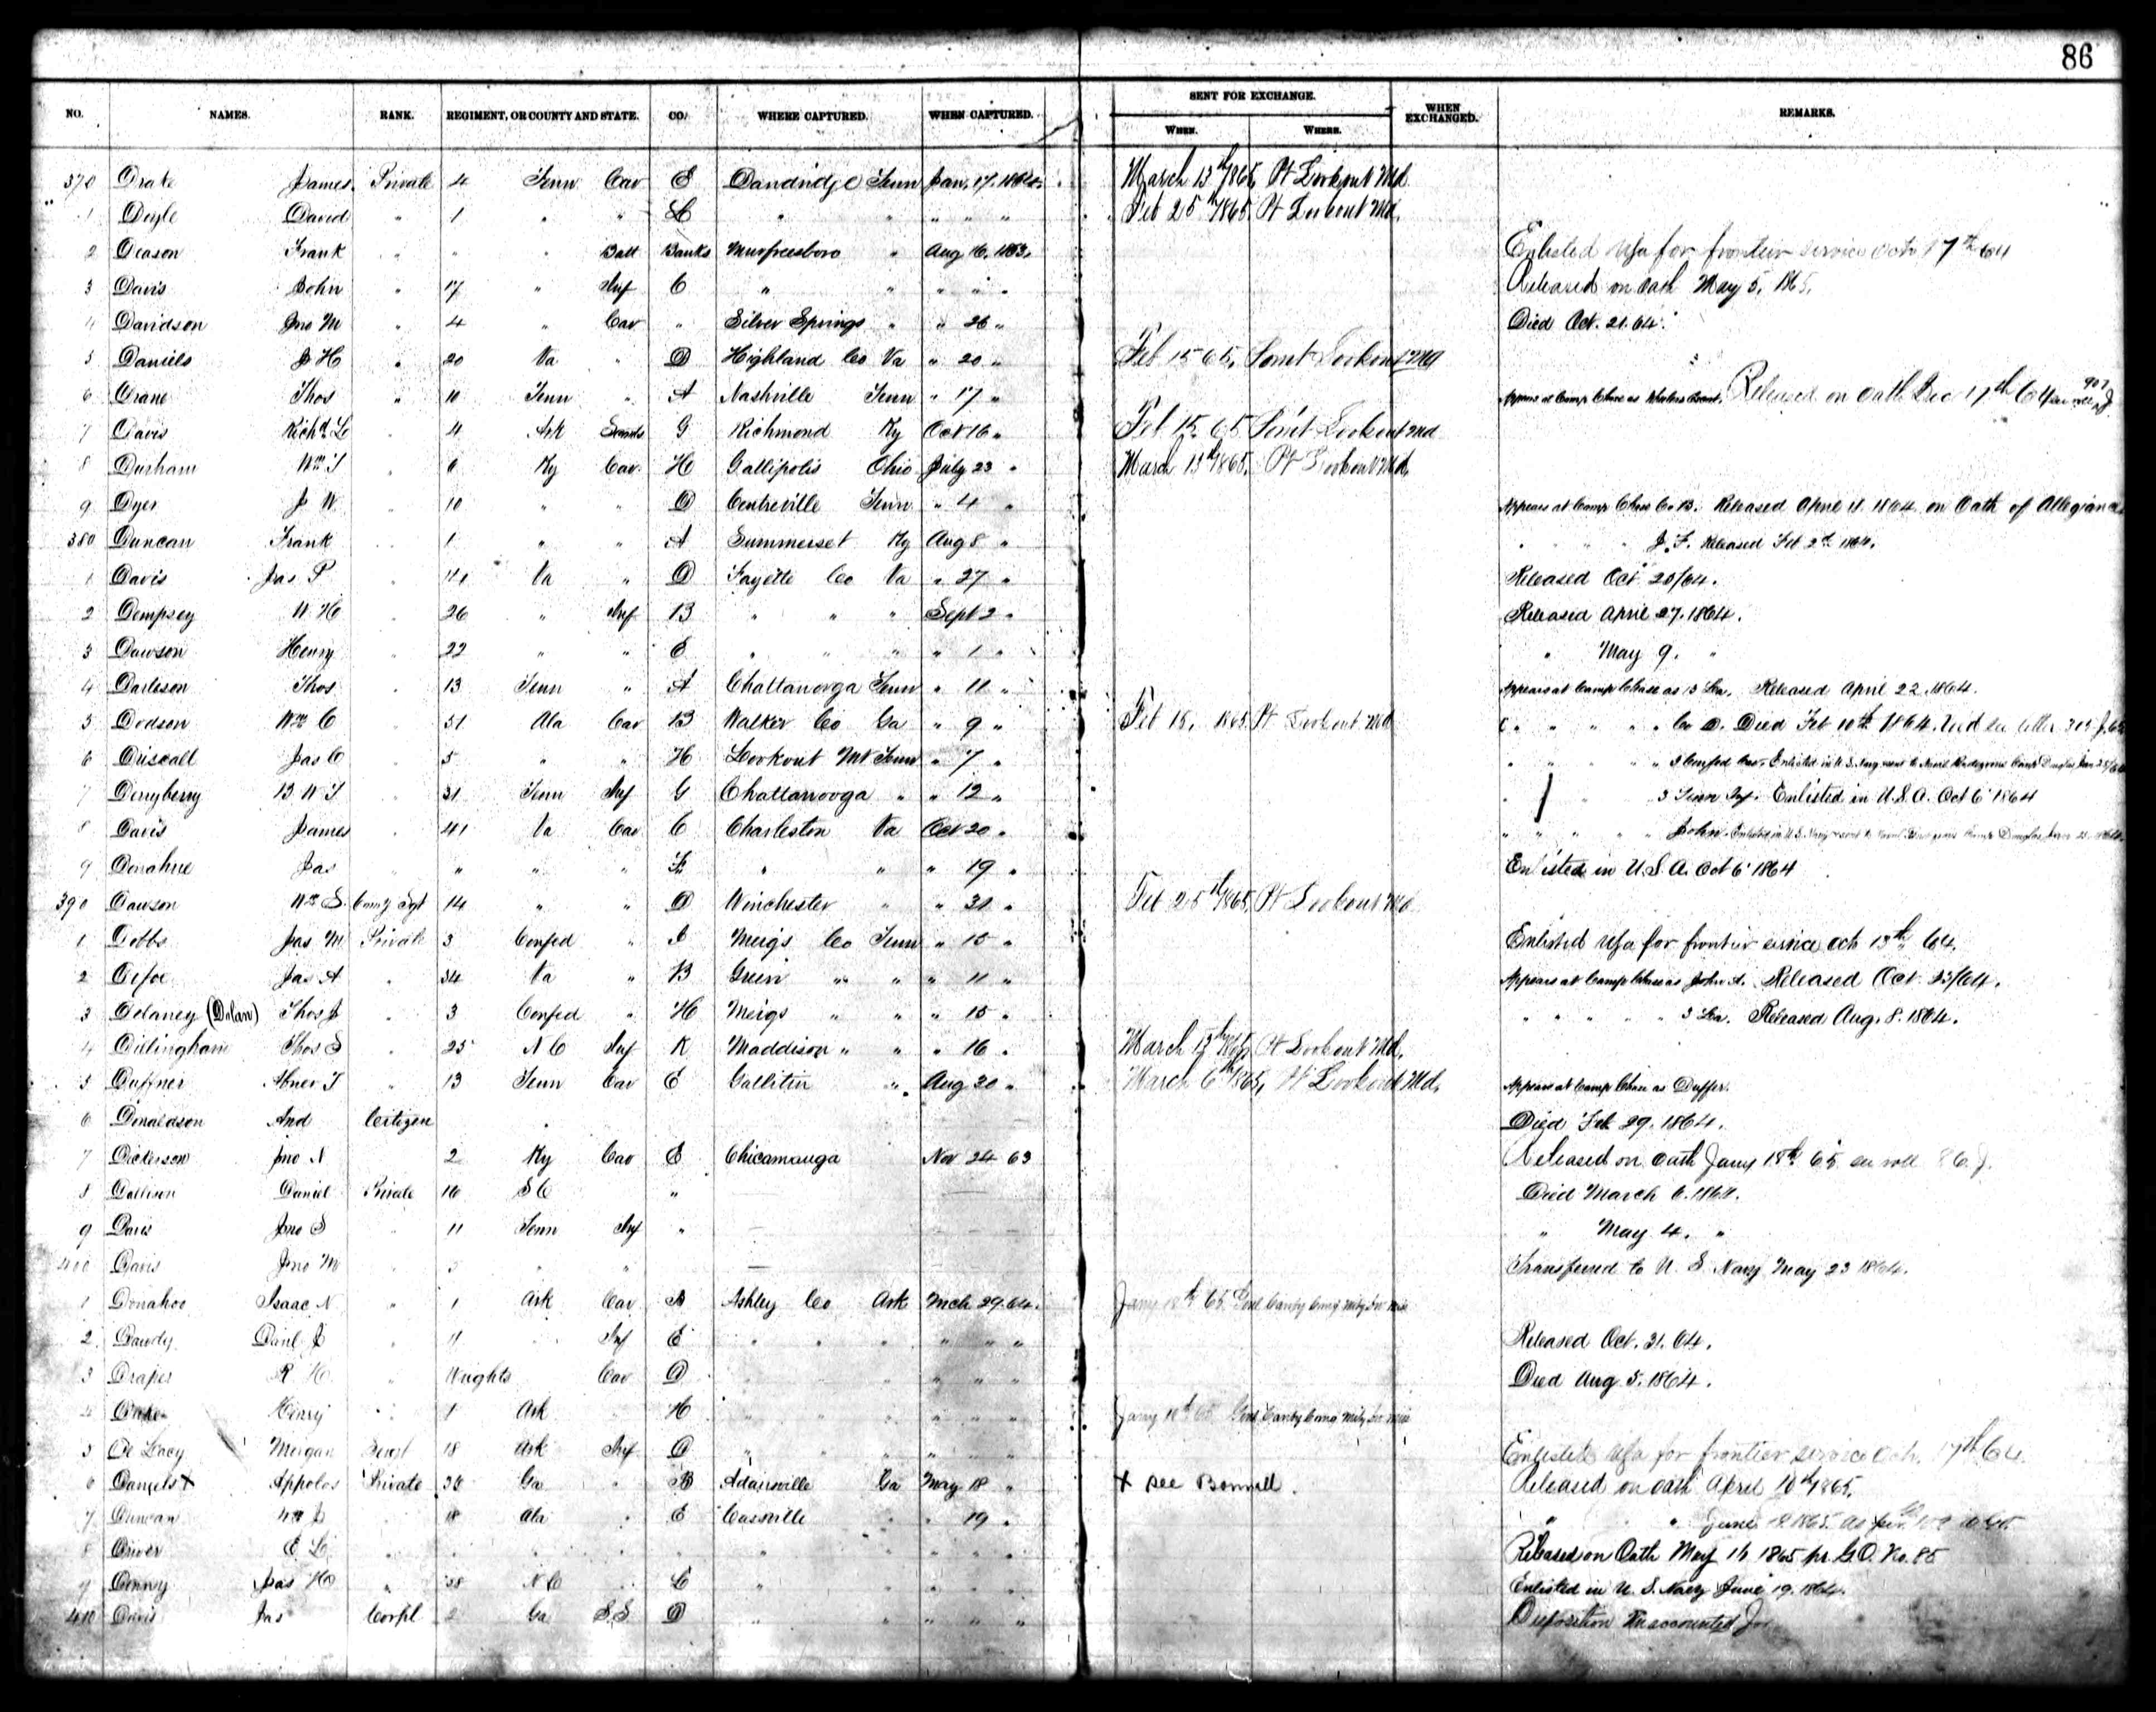 86
NO. NAMES. RANK. REGIMENT, OR COUNTY AND STATE. CO. WHERE CAPTURED. WHEN CAPTURED. SENT FOR EXCHANGE. WHEN. WHERE. WHEN EXCHANGED. REMARKS.
370 Drake James Private 4 Tenn Cav E Dandridge Tenn Jan. 17. 1864. March 13th 1865, Pt Lookout Md.
1 Doyle David " 1 " " " " " " " Feb 25th 1865, Pt Lookout Md.
2 Deason Frank " " " Batt Banks Murfreesboro " Aug 16. 1863. Enlisted Usa for frontier service Octo 17th 64
3 Davis John " 17 " Inf C " " " " " Released on Oath May 5, 1865.
4 Davidson Jno M " 4 " Cav " Silver Springs " " 26 " Died Oct. 21. 64.
5 Daniels J H " 20 Va " D Highland Co Va " 20 " Feb 15 65, Point Lookout Md
6 Drane Thos " 10 Tenn " A Nashville Tenn " 17 " Appears at Camp Chase as Released on Oath Dec 17th 64 see roll 907 J
7 Davis Richd L " 4 Ark G Richmond Ky Oct 16 " Feb 15. 65 Point Lookout Md
8 Durham Wm T " 6 Ky Cav. H Gallipolis Ohio July 23 " March 13th 1865, Pt Lookout Md.
9 Dyer J W " 10 " " D Centreville Tenn " 4 " Appears at Camp Chase Co B. Released April 11. 1864 on Oath of Allegiance
380 Duncan Frank " 1 " " A Summerset Ky Aug 8 " " " " " J. F. Released Feb 2d 1864.
1 Davis Jas P " 41 Va " D Fayette Co Va " 27 " Released Oct 20/64.
2 Dempsey W H " 26 " Inf B " " " Sept 2 " Released April 27. 1864.
3 Dawson Henry " 22 " " E " " " " 1 " " May 9. "
4 Darleson Thos " 13 Tenn " A Chattanooga Tenn " 11 " Appears at Camp Chase as 13 Ga. Released April 22. 1864.
5 Dodson Wm C " 51 Ala Cav B Walker Co Ga " 9 " Feb 15, 1865. Pt Lookout Md " " " " Co D. Died Feb 10th 1864. see letter
6 Driscall Jas C " 5 " " H Lookout Mt Tenn " 7 " " " " " " 3 Confed Cav. Enlisted in U. S. Navy
7 Denyberry B W T " 31 Tenn Inf G Chattanooga " " 12 " " " " 3 Tenn Inf. Enlisted in U.S.A. Oct 6 1864
8 Davis James " 41 Va Cav C Charleston Va Oct 20 " " " " " " John. Enlisted in U. S. Navy
9 Donahue Jas " " " " " " " 19 " Enlisted in U.S.A. Oct 6 1864
390 Dawson Wm S. Comy Sgt 14 " " D Winchester " " 31 " Feb 25th 1865, Pt Lookout Md
1 Dobbs Jas M Private 3 Confed " I Meigs Co Tenn " 15 " Enlisted Usa for frontier service Oct 13th 64.
2 Defoe Jas A " 34 Va " B Green " " " 11 " Appears at Camp Chase as John A. Released Oct 23/64.
3 Delaney (Dolan) Thos J " 3 Confed " H Meigs " " " 15 " " " " " " 3 Ga. Released Aug. 8. 1864.
4 Dillingham Thos S " 25 N C Inf K Maddison " " " 16 " March 13th 1865, Pt Lookout Md.
5 Duffner Abner T " 13 Tenn Cav E Gallitin " Aug 20 " March 6th 1865, Pt Lookout Md. Appears at Camp Chase as Duffer.
6 Donaldson And Citizen Died Feb 29. 1864.
7 Dickerson Jno N 2 Ky Cav E Chicamauga Nov 24 63 Released on Oath Jany 18th 65 see roll 86 J.
8 Dollison Daniel Private 16 S C " Died March 6. 1864.
9 Davis Jno S " 11 Tenn Inf " " May 4. "
400 Davis Jno M " 5 " " Transferred to U. S. Navy May 23 1864.
1 Donahoo Isaac N " 1 Ark Cav A Ashley Co Ark Mch 29. 64. Jany 18th 65. Genl Canby Comg
2 Dawdy Danl J " 11 " Inf E " " " " " " Released Oct. 31. 64.
3 Draper R H " Wrights Cav D " " " " " " Died Aug 5. 1864.
4 Henry " 1 Ark " H " " " " " " Jany 18th 65 Genl Canby Comg
5 De Lacy Morgan Sergt 18 Ark Inf D " " " " " " Enlisted Usa for frontier service Oct. 17th 64.
6 Daniels + Appolos Private 36 Ga " B Adairsville Ga May 18 " + see Bonnell. Released on Oath April 10th 1865.
7 Duncan W J " 18 Ala " E Cassville " " 19 " " " June 12. 1865. as per
8 Driver E L " " " " " " " " " " Released on Oath May 16 1865 pr. G.O. No. 85
9 Denny Jas H " 58 N C " C " " " " " Enlisted in U. S. Navy June 19. 1864.
410 Davis Jas Corpl 2 Ga S.S D " " " " " Disposition Unaccounted for